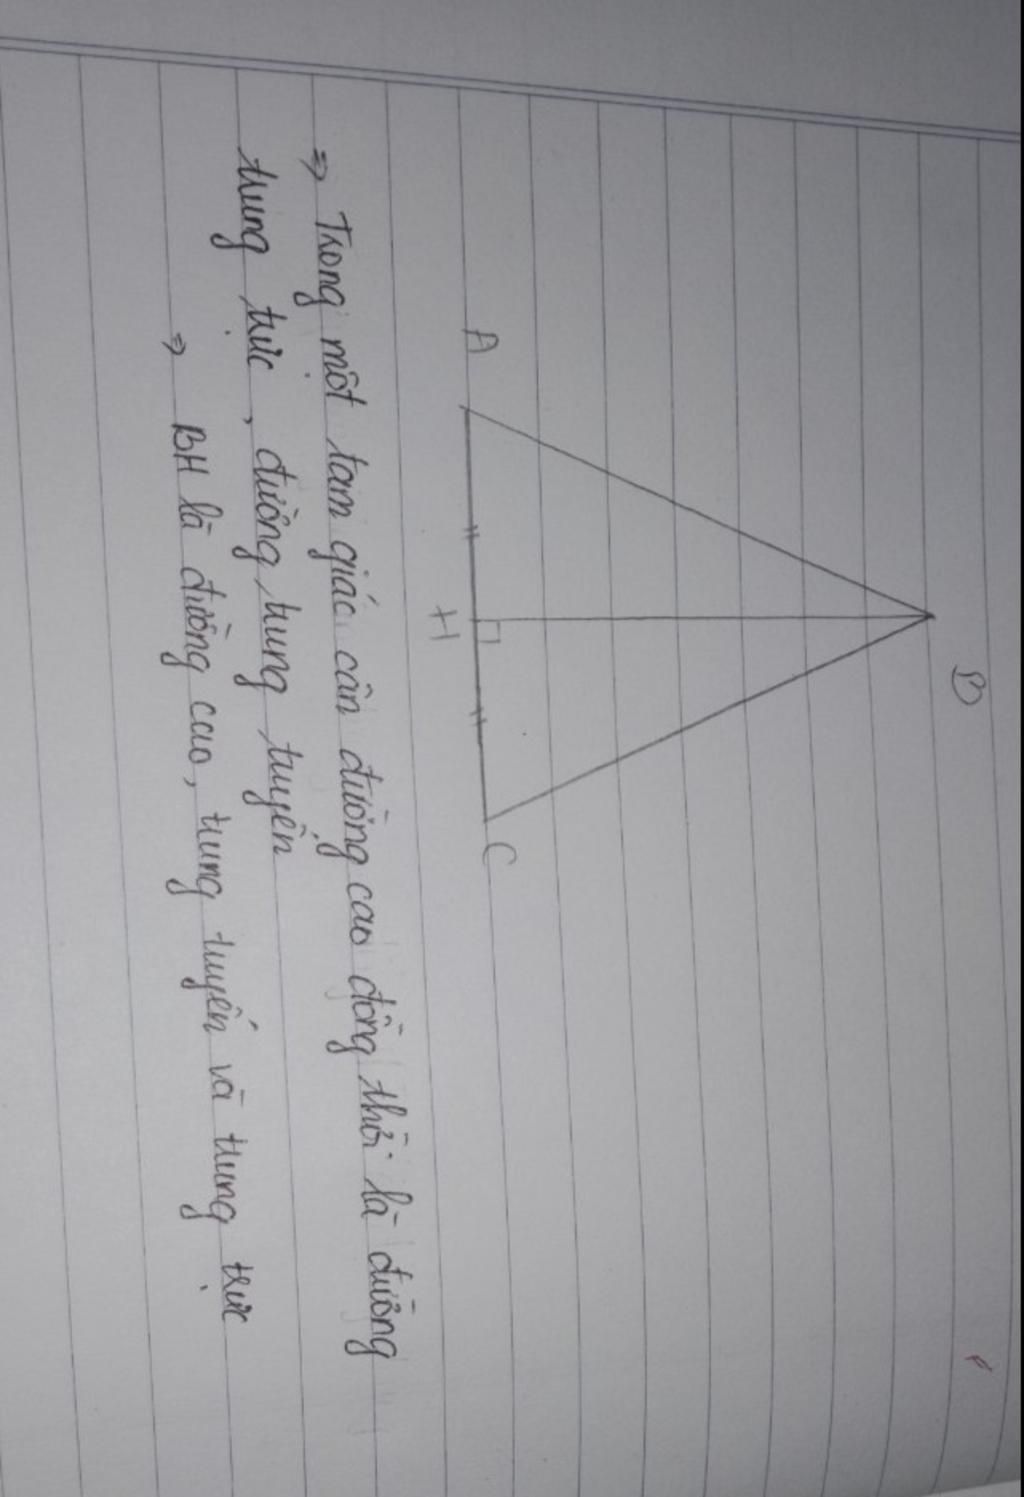 B
A
H
C
⇒ Trong một tam giác cân đường cao đồng thời là đường
trung trực, đường trung tuyến
⇒ BH là đường cao, trung tuyến và trung trực